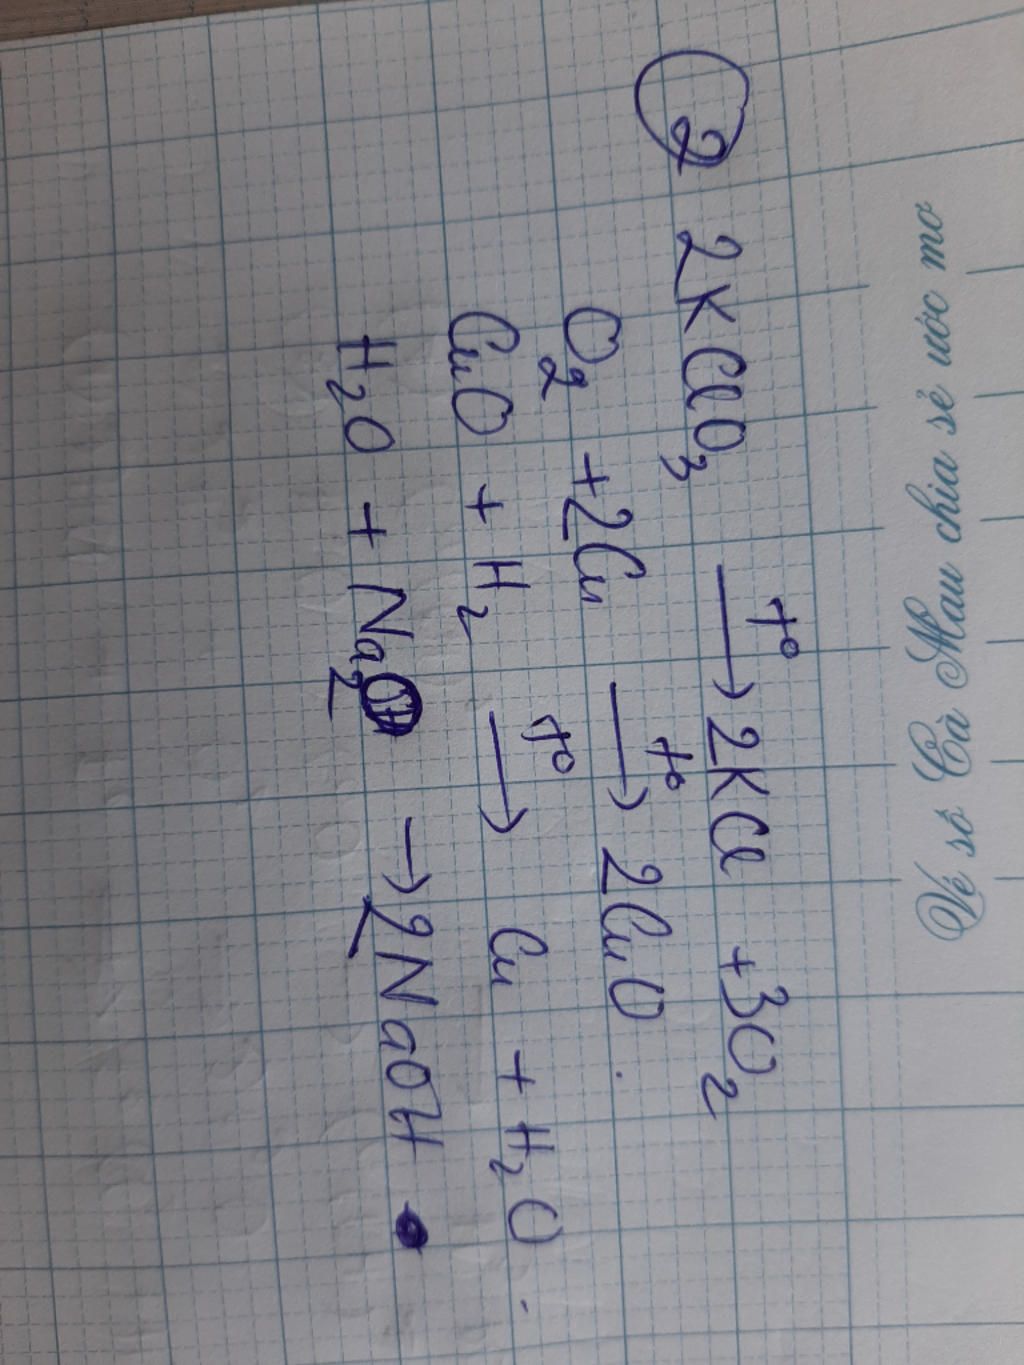 Vé số Cà Mau chia sẻ ước mơ
C2 2KClO₃ —t°→ 2KCl + 3O₂
O₂ + 2Cu —t°→ 2CuO.
CuO + H₂ —t°→ Cu + H₂O.
H₂O + Na₂O → 2NaOH.